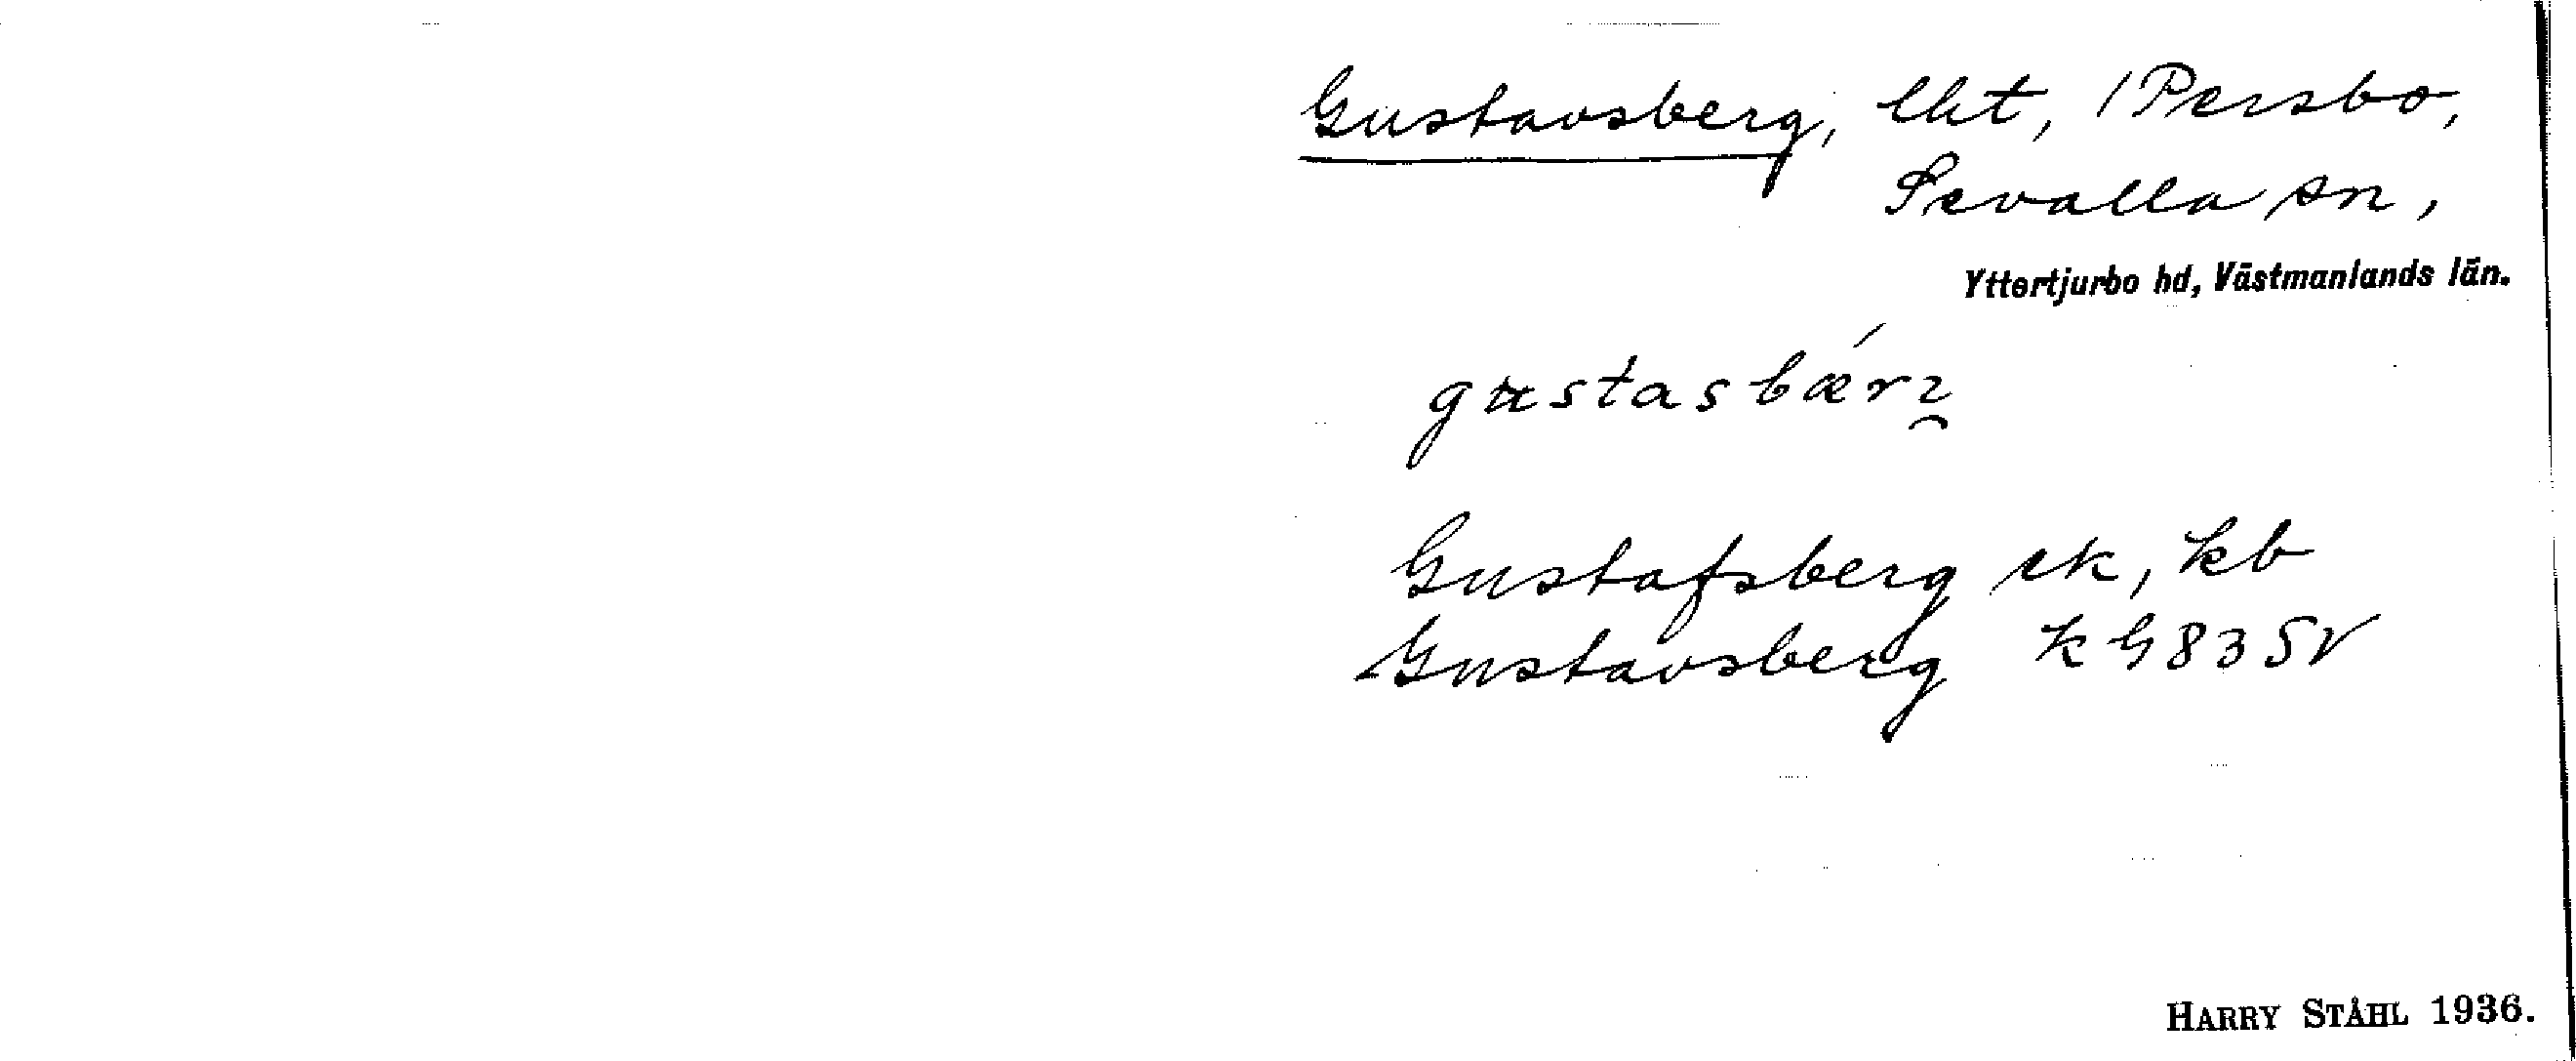 Gustavsberg, lht, / Persbo,
Sevalla sn,
Yttertjurbo hd, Västmanlands län.
gustasbǽrᶎ
Gustafsberg ek, kb
Gustavsberg KG 83 SV
HARRY STÅHL 1936.